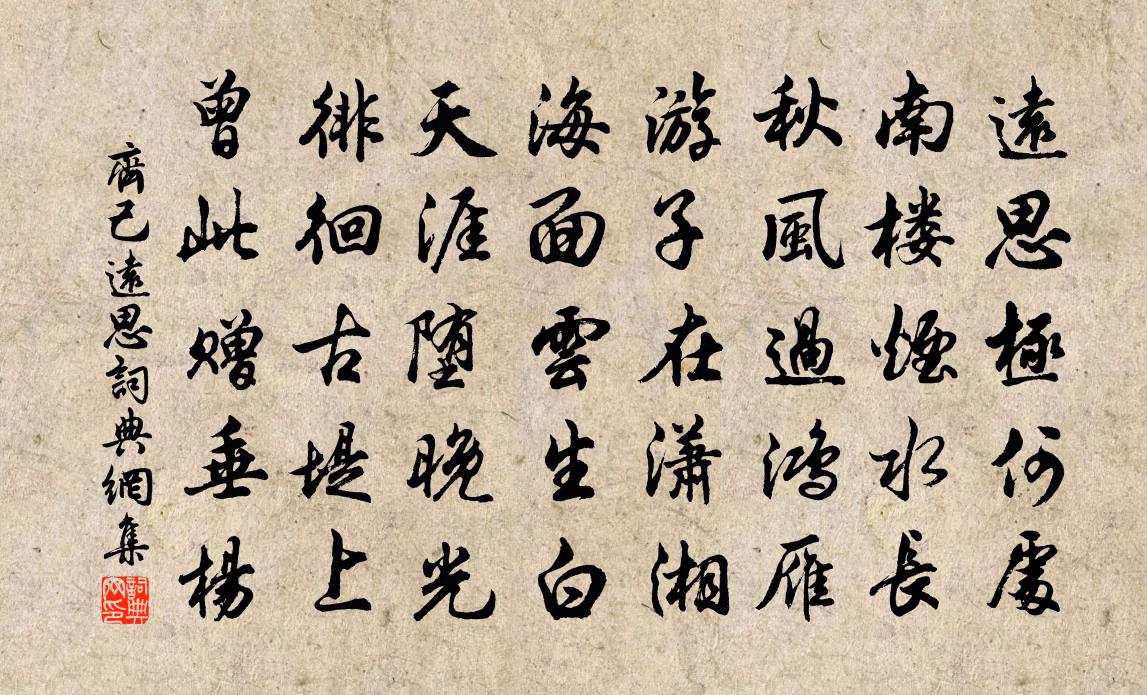 遠思極何處
南楼煙水長
秋風過鴻雁
游子在瀟湘
海面雲生白
天涯堕晚光
徘徊古堤上
曾此赠垂楊
齊己遠思詞典網集
詞典网印